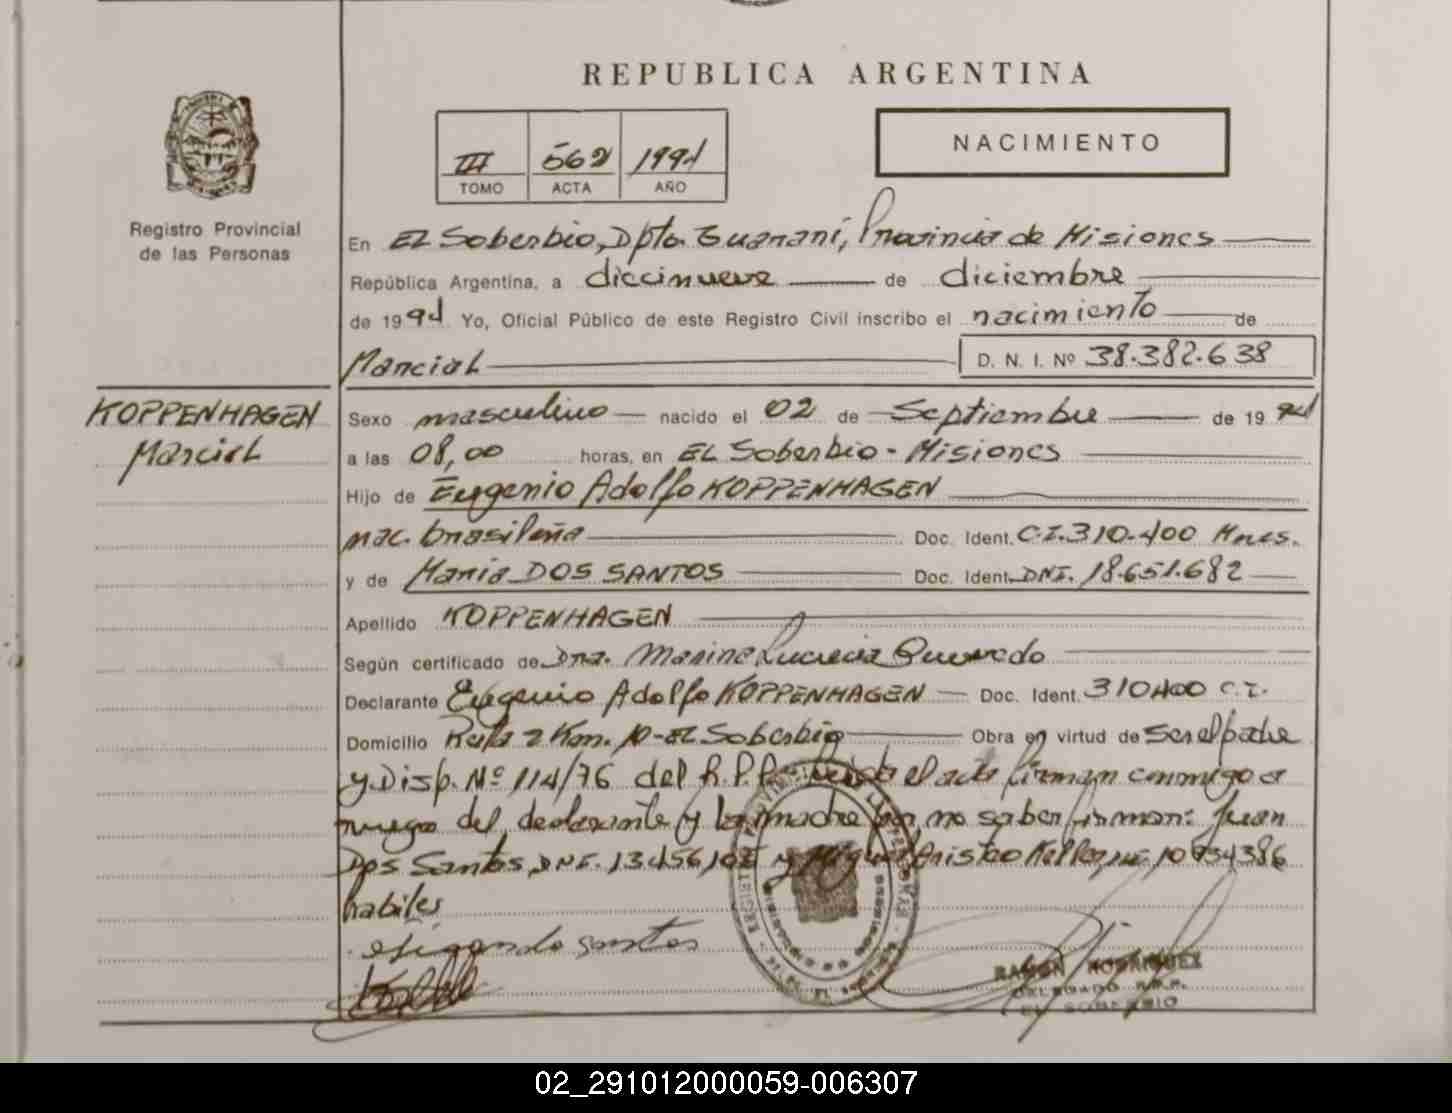 REPUBLICA ARGENTINA
NACIMIENTO
III 562 1994
TOMO ACTA AÑO
Registro Provincial
de las Personas
En EL Soberbio, Dpto. Guaraní, Provincia de Misiones
República Argentina, a diecinueve de diciembre
de 1994 Yo, Oficial Público de este Registro Civil inscribo el nacimiento de
Marcial D. N. I. Nº 38.382.638
KOPPENHAGEN
Marcial
Sexo masculino nacido el 02 de Septiembre de 1994
a las 08,00 horas, en EL Soberbio - Misiones
Hijo de Eugenio Adolfo KOPPENHAGEN
nac. brasileña Doc. Ident. C.I. 310.400 Mnes.
y de Maria DOS SANTOS Doc. Ident. DNI. 18.651.682
Apellido KOPPENHAGEN
Según certificado de Dra. Marina Lucrecia Quevedo
Declarante Eugenio Adolfo KOPPENHAGEN Doc. Ident. 310400 C.I.
Domicilio Ruta 2 Km. 10 - EL Soberbio Obra en virtud de ser el padre
y Disp. Nº 114/76 del R.P.P. el acta firman conmigo a
ruego del declarante y la madre por no saber firmar: Juan
Dos Santos, DNI. 13456102 y Miguel Aristeo 10934386
habiles
santos
RAMON RODRIGUEZ
DELEGADO R.P.P.
EL SOBERBIO
02_291012000059-006307